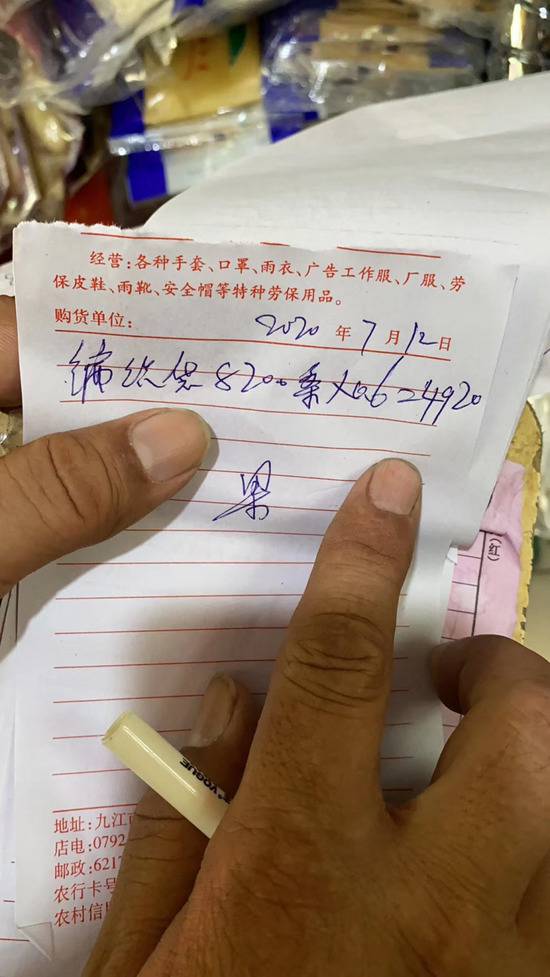 经营:各种手套、口罩、雨衣、广告工作服、厂服、劳
保皮鞋、雨靴、安全帽等特种劳保用品。
购货单位: 2020 年 7 月 12 日
编织袋 8200条×0.6=4920
(红)
VOGUE
地址:九江
店电:0792
邮政:6217
农行卡号
农村信